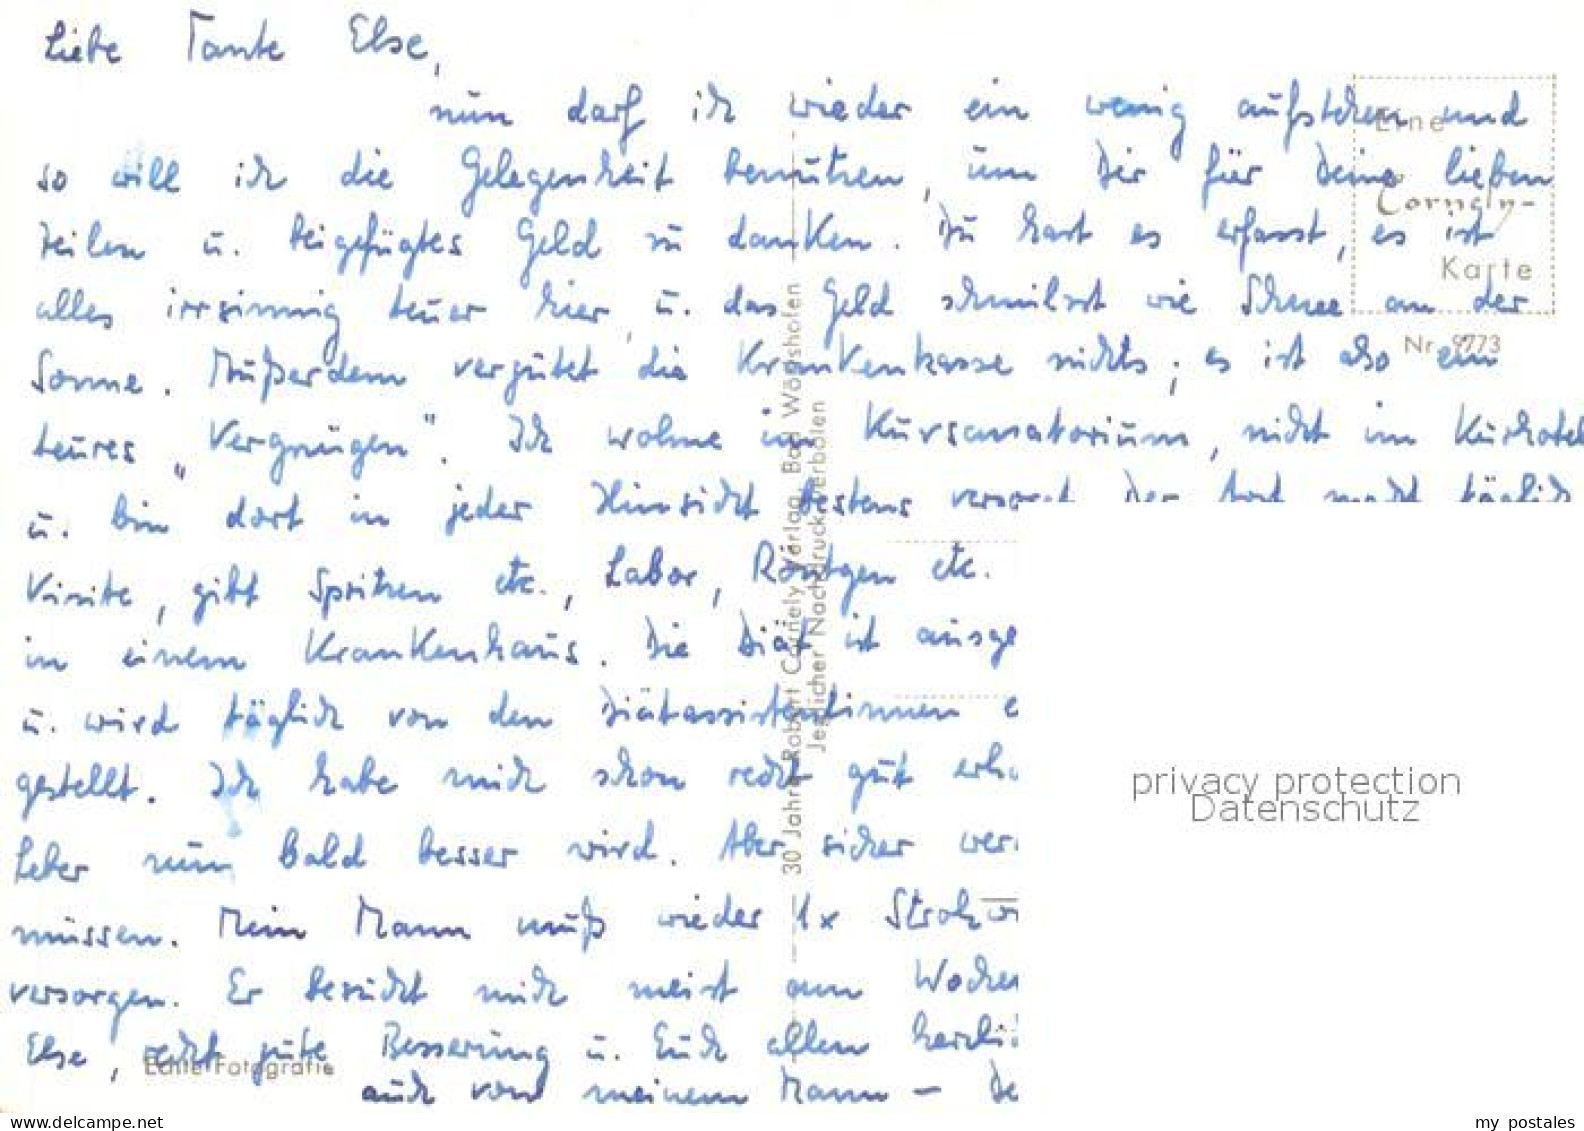 Liebe Tante Else,
nun darf ich wieder ein wenig aufstehen und
so will ich die Gelegenheit benutzen, um Dir für Deine lieben
Zeilen u. beigefügtes Geld zu danken. Du hast es erfasst, es ist
alles irrsinnig teuer hier, u. das Geld schmilzt wie Schnee an der
Sonne. Außerdem vergütet die Krankenkasse nichts; es ist also ein
teures „Vergnügen". Ich wohne im Kursanatorium, nicht im Kurhotel
u. bin dort in jeder Hinsicht bestens versorgt. Der Arzt macht täglich
Visite, gibt Spritzen etc., Labor, Röntgen etc.
in einem Krankenhaus. Die Diät ist ausge
u. wird täglich von den Diätassistentinnen
gestellt. Ich habe mich schon recht gut erho
Leber nun bald besser wird. Aber sicher wer
müssen. Mein Mann muß wieder 1x Strohw
versorgen. Er besucht mich meist am Wochen
Else, recht gute Besserung u. Euch allen herzli
auch von meinem Mann – De
Eine
Cornely-
Karte
Nr. 9773
30 Jahre Robert Cornely Verlag, Bad Wörishofen
Jeglicher Nachdruck verboten
Echte Fotografie
privacy protection
Datenschutz
my postales